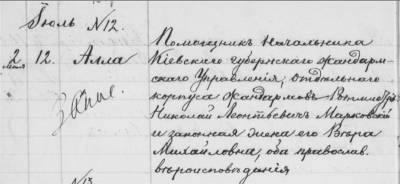 Іюль №12.
2 Іюля 12. Алла
Помощникъ Начальника
Кіевскаго губернскаго жандарм-
скаго Управленія, отдѣльнаго
корпуса жандармовъ Ротмистръ
Николай Леонтьевичъ Марковскій
и законная жена его Вѣра
Михайловна, оба православ.
вѣроисповѣданія
№13